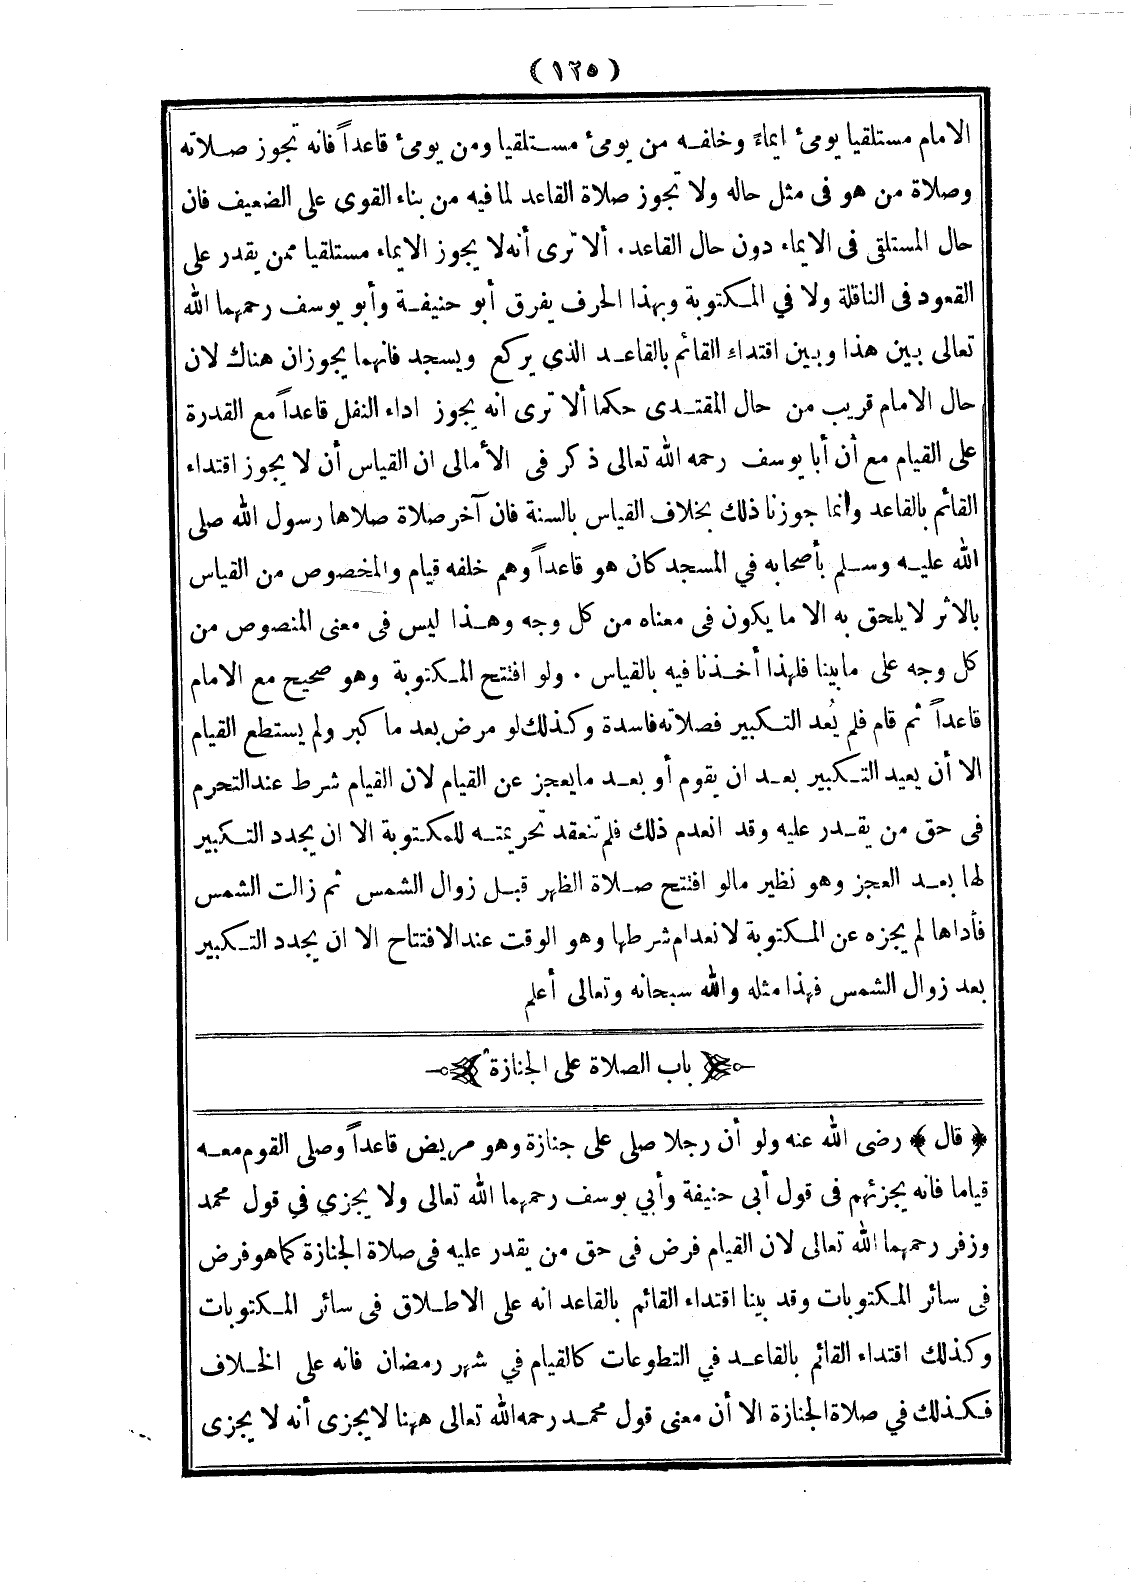 (١٢٥)
الامام مستلقيا يومئ ايماءً وخلفه من يومئ مستلقيا ومن يومئ قاعداً فانه تجوز صلاته
وصلاة من هو فى مثل حاله ولا تجوز صلاة القاعد لما فيه من بناء القوى على الضعيف فان
حال المستلقى فى الايماء دون حال القاعد. ألا ترى أنه لا يجوز الايماء مستلقيا ممن يقدر على
القعود فى النافلة ولا في المكتوبة وبهذا الحرف يفرق أبو حنيفة وأبو يوسف رحمهما الله
تعالى بين هذا وبين اقتداء القائم بالقاعد الذي يركع ويسجد فانهما يجوزان هناك لان
حال الامام قريب من حال المقتدى حكما ألا ترى انه يجوز اداء النفل قاعداً مع القدرة
على القيام مع أن أبا يوسف رحمه الله تعالى ذكر فى الأمالى ان القياس أن لا يجوز اقتداء
القائم بالقاعد وانما جوزنا ذلك بخلاف القياس بالسنة فان آخر صلاة صلاها رسول الله صلى
الله عليه وسلم بأصحابه في المسجد كان هو قاعداً وهم خلفه قيام والمخصوص من القياس
بالاثر لا يلحق به الا ما يكون فى معناه من كل وجه وهذا ليس فى معنى المنصوص من
كل وجه على ما بينا فلهذا أخذنا فيه بالقياس . ولو افتتح المكتوبة وهو صحيح مع الامام
قاعداً ثم قام فلم يُعد التكبير فصلاته فاسدة وكذلك لو مرض بعد ما كبر ولم يستطع القيام
الا أن يعيد التكبير بعد ان يقوم أو بعد ما يعجز عن القيام لان القيام شرط عند التحرم
فى حق من يقدر عليه وقد انعدم ذلك فلم تنعقد تحريمته للمكتوبة الا ان يجدد التكبير
لها بعد العجز وهو نظير مالو افتتح صلاة الظهر قبل زوال الشمس ثم زالت الشمس
فأداها لم يجزه عن المكتوبة لانعدام شرطها وهو الوقت عند الافتتاح الا ان يجدد التكبير
بعد زوال الشمس فهذا مثله والله سبحانه وتعالى أعلم
باب الصلاة على الجنازة
﴿ قال ﴾ رضى الله عنه ولو أن رجلا صلى على جنازة وهو مريض قاعداً وصلى القوم معه
قياما فانه يجزئهم فى قول أبى حنيفة وأبي يوسف رحمهما الله تعالى ولا يجزي في قول محمد
وزفر رحمهما الله تعالى لان القيام فرض فى حق من يقدر عليه فى صلاة الجنازة كما هو فرض
فى سائر المكتوبات وقد بينا اقتداء القائم بالقاعد انه على الاطلاق فى سائر المكتوبات
وكذلك اقتداء القائم بالقاعد في التطوعات كالقيام في شهر رمضان فانه على الخلاف
فكذلك في صلاة الجنازة الا أن معنى قول محمد رحمه الله تعالى ههنا لا يجزى أنه لا يجزى